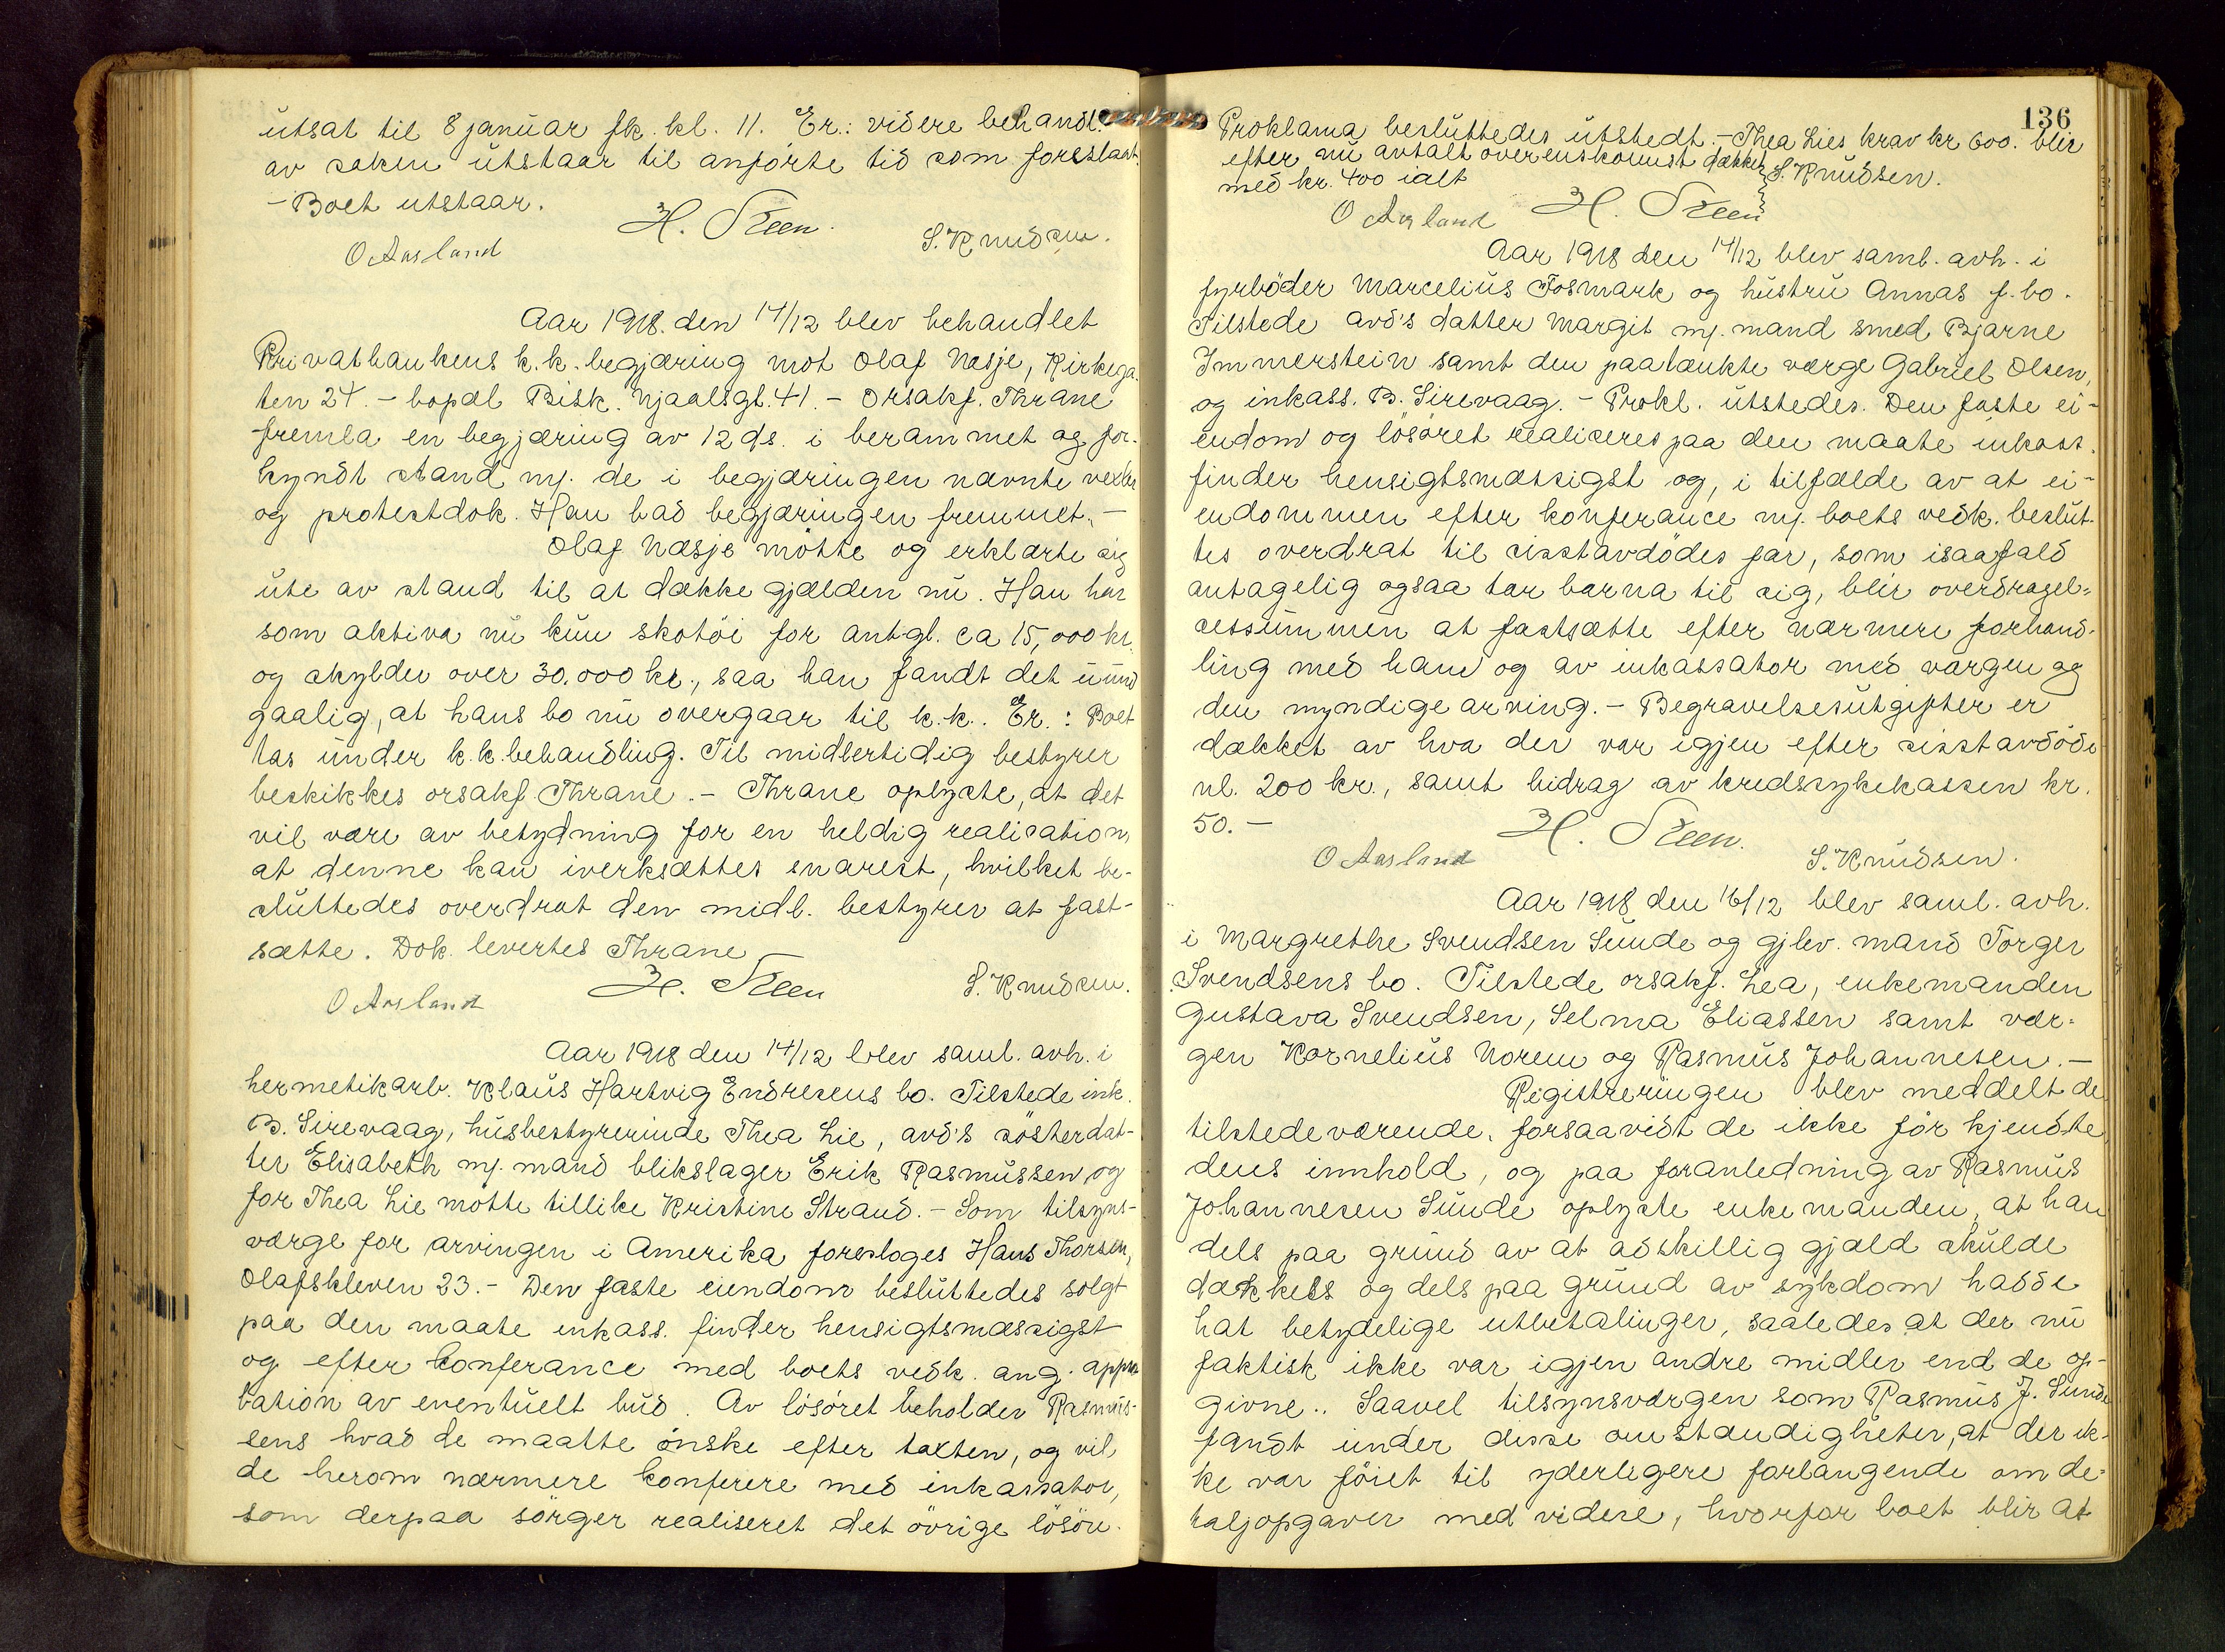 utsat til 8 januar fk. kl. 11. Er.: videre behandl.
av saken utstaar til anførte tid som foreslaat.
- Boet utstaar.
H. Steen.
O Aasland
S. Knudsen.
Aar 1918. den 14/12 blev behandlet
Privatbankens k.k. begjæring mot Olaf Næsje, Kirkega-
ten 24. - bopæl Bisk. Njaalsgt. 41. - Orsakf. Thrane
fremla en begjæring av 12 ds. i berammet og for-
kyndt stand m/. de i begjæringen nævnte vexler
og protestdok. Han bad begjæringen fremmet. -
Olaf Næsje møtte og erklærte sig
ute av stand til at dække gjælden nu. Han har
som aktiva nu kun skotøi for antgl. ca 15,000 kr.
og skylder over 30.000 kr., saa han fandt det uund
gaalig, at hans bo nu overgaar til k.k.. Er.: Boet
tas under k.k. behandling. Til midlertidig bestyrer
beskikkes orsakf. Thrane. - Thrane oplyste, at det
vil være av betydning for en heldig realisation,
at denne kan iverksættes snarest, hvilket be-
sluttedes overdrat den midl. bestyrer at fast-
sætte. Dok. levertes Thrane
H. Steen
S. Knudsen.
O Aasland
Aar 1918 den 14/12 blev saml. avh. i
hermetikarb. Klaus Hartvig Endresens bo. Tilstede ink.
B. Sirevaag, husbestyrerinde Thea Lie, avd's søsterdat-
ter Elisabeth m/. mand blikslager Erik Rasmussen, og
for Thea Lie møtte tillike Kristine Strand. - Som tilsyns-
værge for arvingen i Amerika foresloges Hans Thorsen,
Olafskleven 23. - Den faste eiendom besluttedes solgt
paa den maate inkass. finder hensigtsmæssigst
og efter konferance med boets vedk. ang. appro
bation av eventuelt bud. Av løsøret beholder Rasmus-
sens hvad de maatte ønske efter taxten, og vil
de herom nærmere konferere med inkassator,
som derpaa sørger realiseret det øvrige løsøre.
136
Proklama besluttedes utstedt. - Thea Lies krav kr 600. blir
efter nu avtalt overenskomst dækket
med kr. 400 ialt
S. Knudsen.
O Aasland
H. Steen
Aar 1918 den 14/12 blev saml. avh. i
fyrbøder Marcelius Fosmark og hustru Annas f. bo.
Tilstede avd's datter Margit m/. mand smed Bjarne
Immerstein samt den paatænkte værge Gabriel Olsen,
og inkass. B. Sirevaag. - Prokl. utstedes. Den faste ei-
endom og løsøret realiceres paa den maate inkass.
finder hensigtsmæssigst og, i tilfælde av at ei-
endommen efter konferance m/. boets vedk. beslut-
tes overdrat til sisstavdødes far, som isaafald
antagelig ogsaa tar barna til sig, blir overdragel-
sessummen at fastsætte efter nærmere forhand-
ling med ham og av inkassator med værgen og
den myndige arving. - Begravelsesutgifter er
dækket av hva der var igjen efter sisstavdøde
nl. 200 kr., samt bidrag av kredssykekassen kr.
50. -
H. Steen.
O Aasland
S. Knudsen.
Aar 1918 den 16/12 blev saml. avh.
i Margrethe Svendsen Sunde og gjlev. mand Torger
Svendsens bo. Tilstede orsakf. Lea, enkemanden
Gustava Svendsen, Selma Eliassen samt vær-
gen Kornelius Norem og Rasmus Johannesen. -
Registreringen blev meddelt de
tilstedeværende, forsaavidt de ikke før kjendte
dens innhold, og paa foranledning av Rasmus
Johannesen Sunde oplyste enkemanden, at han
dels paa grund av at adskillig gjæld skulde
dækkess og dels paa grund av sykdom hadde
hat betydelige utbetalinger, saaledes at der nu
faktisk ikke var igjen andre midler end de op-
givne.. Saavel tilsynsværgen som Rasmus J. Sunde
fandt under disse omstændigheter, at der ik-
ke var føiet til yderligere forlangende om de-
taljopgaver med videre, hvorfor boet blir at